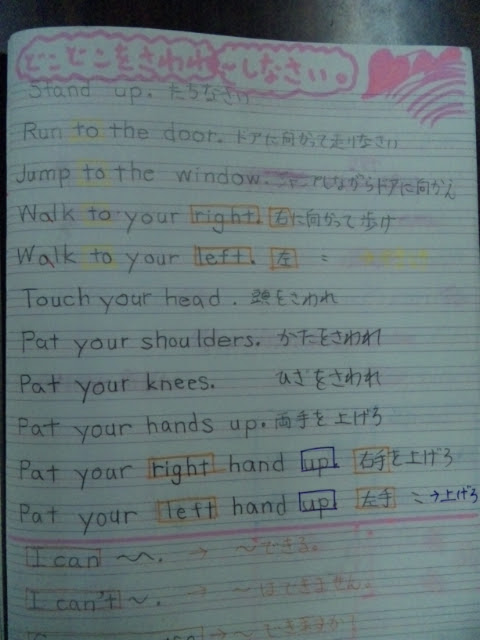 どこどこをさわれ 〜しなさい。
Stand up. たちなさい
Run to the door. ドアに向かって走りなさい
Jump to the window. ジャンプしながらドアに向かえ
Walk to your right. 右に向かって歩け
Walk to your left. 左 :
Touch your head. 頭をさわれ
Pat your shoulders. かたをさわれ
Pat your knees. ひざをさわれ
Pat your hands up. 両手を上げろ
Pat your right hand up. 右手を上げろ
Pat your left hand up 左手 : →上げろ
I can 〜. → 〜できる。
I can't 〜. → 〜はできません。
→ 〜できますか